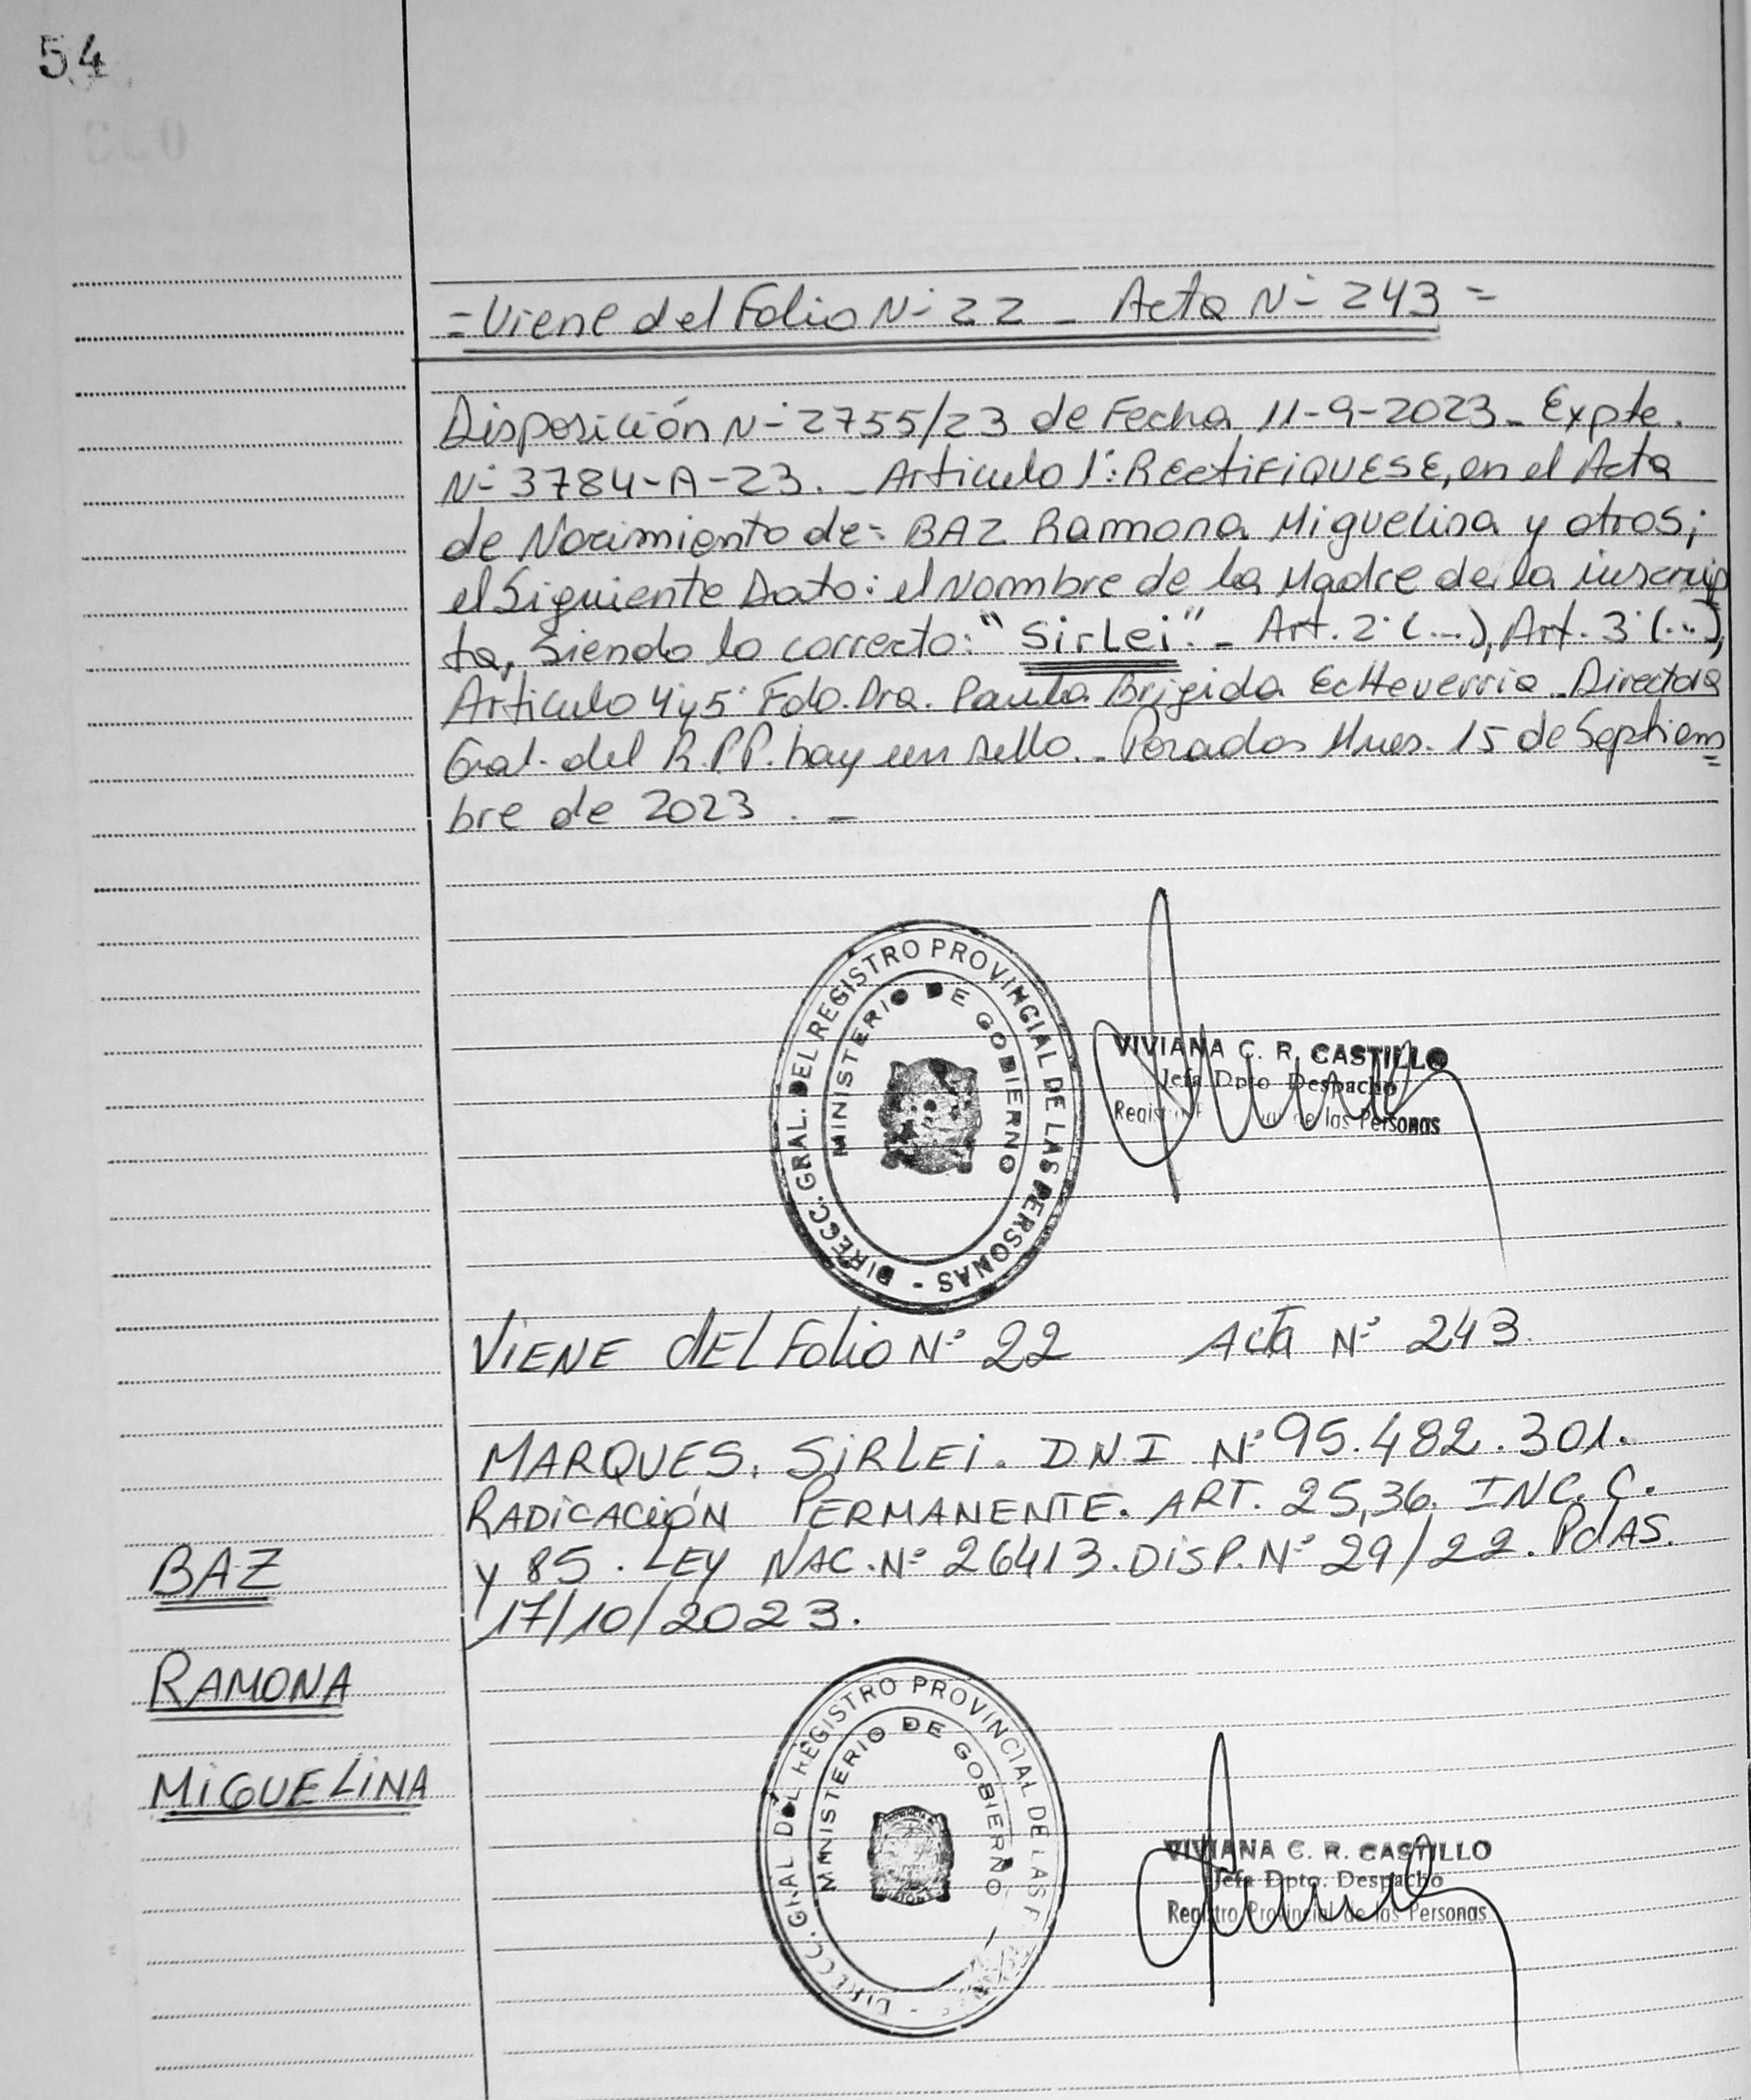 54
= Viene del Folio N° 22 - Acta N° 243 =
Disposición N° 2755/23 de Fecha 11-9-2023 - Expte.
N° 3784-A-23. - Articulo 1°: RECTIFIQUESE, en el Acta
de Nacimiento de: BAZ Ramona Miguelina y otros;
el Siguiente Dato: el Nombre de la Madre de la inscrip
ta, Siendo lo correcto: "SirLei". - Art. 2° (...), Art. 3° (...),
Articulo 4 y 5° Fdo. Dra. Paula Brigida Echeverria - Directora
Gral. del R.P.P. hay un sello. - Posadas Mnes. 15 de Septiem
bre de 2023. -
DIRECC. GRAL. DEL REGISTRO PROVINCIAL DE LAS PERSONAS -
MINISTERIO DE GOBIERNO
VIVIANA C. R. CASTILLO
Jefa Dpto. Despacho
de las Personas
VIENE DEL Folio N° 22 Acta N° 243.
MARQUES. SIRLEI. D.N.I N° 95.482.301.
RADICACIÓN PERMANENTE. ART. 25,36. INC. C.
y 85. LEY NAC. N° 26413. DISP. N° 29/22. PdAS.
17/10/2023.
BAZ
RAMONA
MIGUELINA
DIRECC. GRAL DEL REGISTRO PROVINCIAL DE LAS
MINISTERIO DE GOBIERNO
VIVIANA C. R. CASTILLO
Jefa Dpto. Despacho
Registro Provincial de las Personas